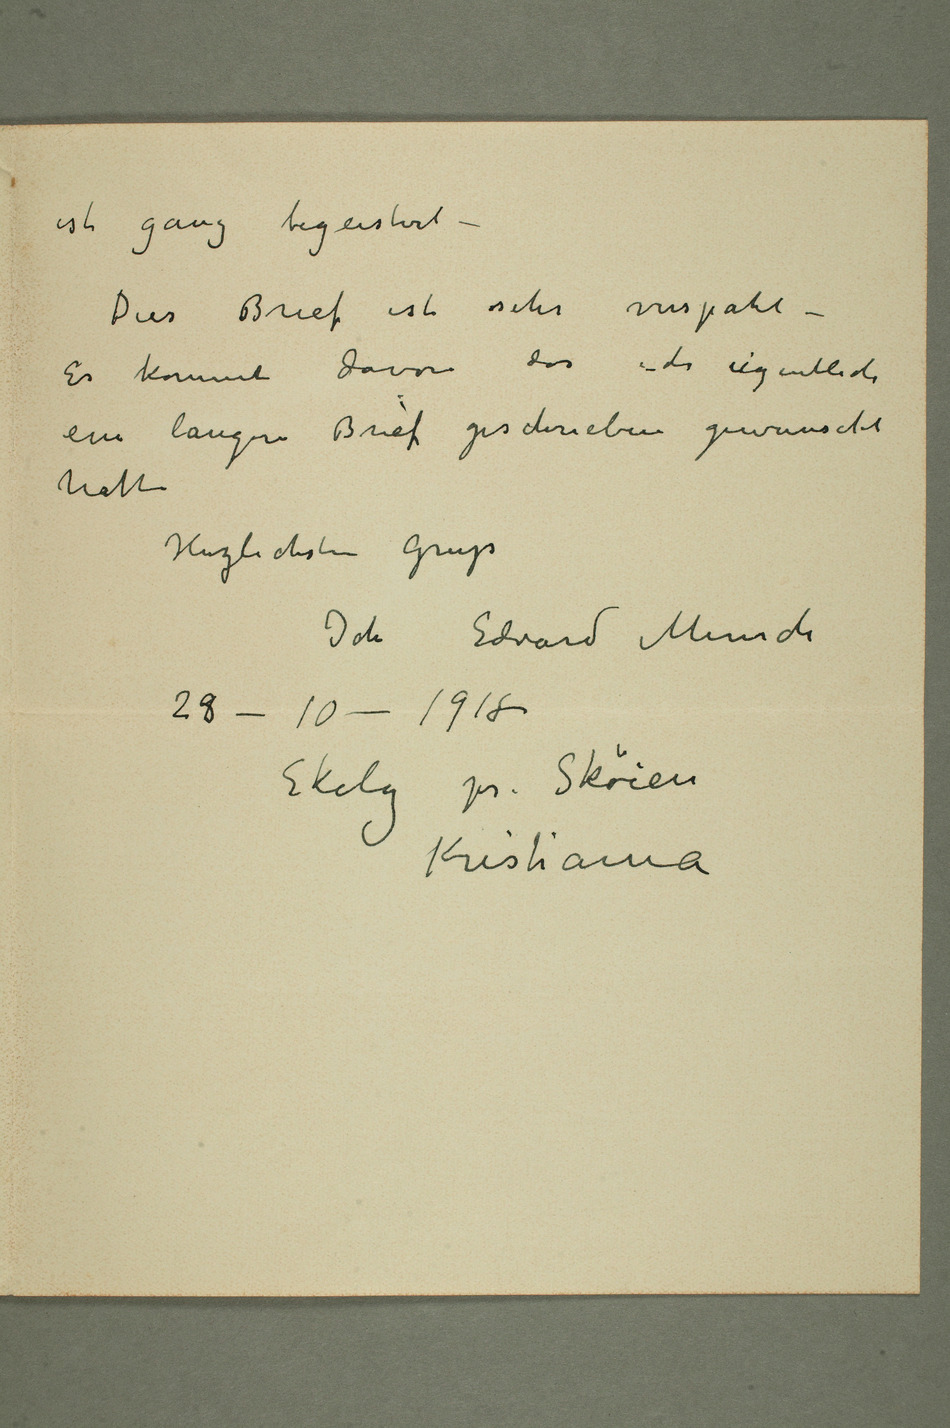 ist ganz begeistert –
Dies Brief ist sehr verspätet –
Es kommt davon das ich eigentlich
ein langen Brief geschrieben gewünscht
hatte
Herzlichsten Gruss
Ich Edvard Munch
28 – 10 – 1918
Ekely pr. Sköien
Kristiania